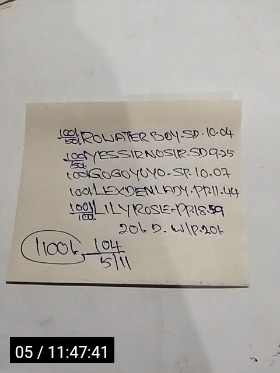 100/50 ROWATER BOY.SD.10.04
100/50 YESSIRNOSIR.SD 9.25
100/ GOGOYUYO-SP.10.07
100/ LEXDENLADY.PP.11.44
100/100 LILYROSIE.PP.18.59
20/6 D. W/P.20/-
1100/- 104
5/11
05 / 11:47:41